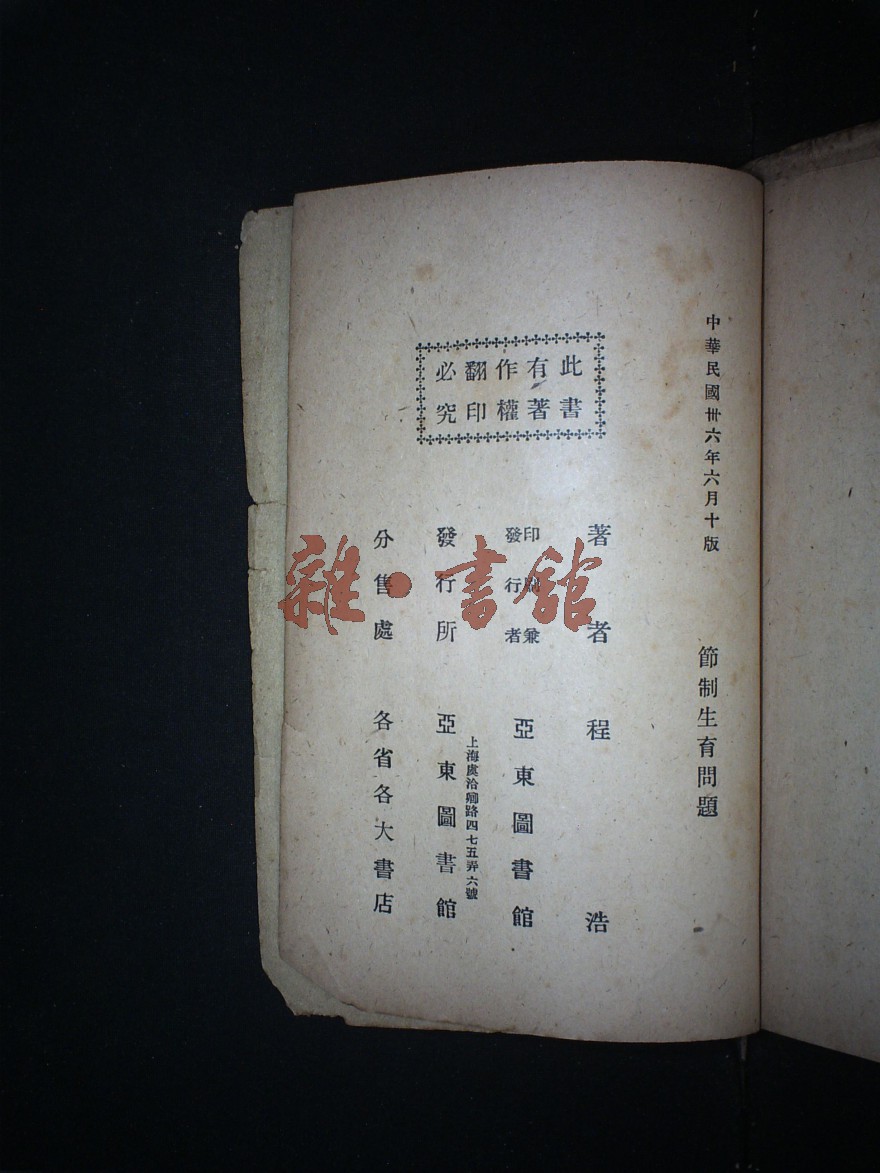 中華民國卅六年六月十版
節制生育問題
此書
有著
作權
翻印
必究
著者 程浩
印刷兼
發行者
亞東圖書館
上海虞洽卿路四七五弄六號
發行所 亞東圖書館
分售處 各省各大書店
雜·書館